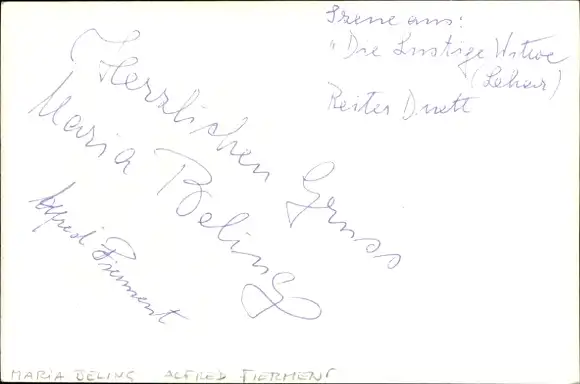 Szene aus:
"Die Lustige Witwe
(Lehar)
Reiter Duett
Herzlichen Gruss
Maria Beling
Alfred Fierment
MARIA BELING ALFRED FIERMENT